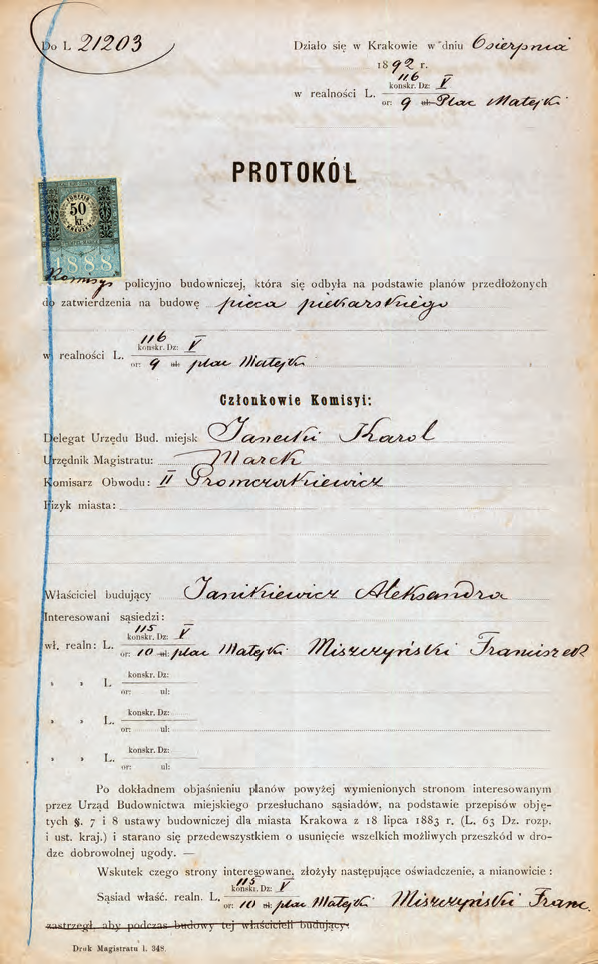 Do L 21203
Działo się w Krakowie w dniu 6 sierpnia
1892 r.
w realności L. 116 konskr. Dz: V
or: 9 ul: Plac Matejki
PROTOKÓL
50
kr.
1888
Komisyi policyjno budowniczej, która się odbyła na podstawie planów przedłożonych
do zatwierdzenia na budowę pieca piekarskiego
w realności L. 116 konskr. Dz: V
or: 9 ul: plac Matejki
Członkowie Komisyi:
Delegat Urzędu Bud. miejsk Janecki Karol
Urzędnik Magistratu: Marek
Komisarz Obwodu: II
Fizyk miasta:
Właściciel budujący Janikiewicz Aleksandra
Interesowani sąsiedzi:
wł. realn: L. 115 konskr. Dz: V
or: 10 ul: plac Matejki Miszczyński Franciszek
" " L. konskr. Dz:
or: ul:
" " L. konskr. Dz:
or: ul:
" " L. konskr. Dz:
or: ul:
Po dokładnem objaśnieniu planów powyżej wymienionych stronom interesowanym
przez Urząd Budownictwa miejskiego przesłuchano sąsiadów, na podstawie przepisów obję-
tych §. 7 i 8 ustawy budowniczej dla miasta Krakowa z 18 lipca 1883 r. (L. 63 Dz. rozp.
i ust. kraj.) i starano się przedewszystkiem o usunięcie wszelkich możliwych przeszkód w dro-
dze dobrowolnej ugody. —
Wskutek czego strony interesowane, złożyły następujące oświadczenie, a mianowicie :
Sąsiad właść. realn. L. 115 konskr. Dz: V
or: 10 ul: plac Matejki Miszczyński Franc.
zastrzegł, aby podczas budowy tej właściciel budujący
Druk Magistratu l. 348.